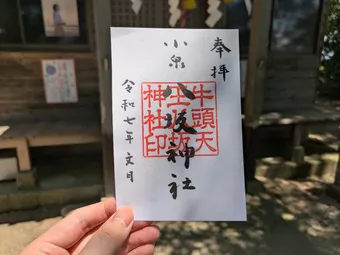 奉拝
小泉
八坂神社
牛頭大
王八坂
神社印
令和七年文月